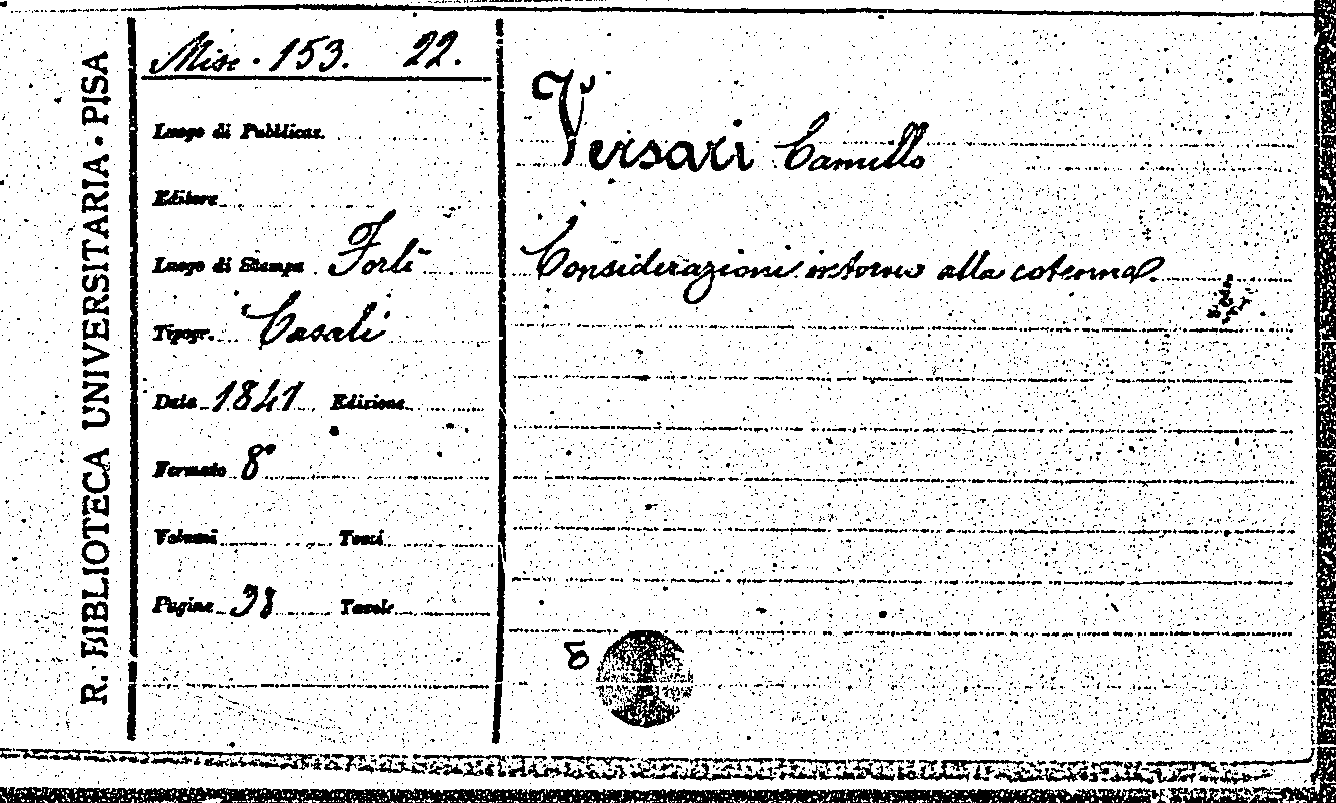 R. BIBLIOTECA UNIVERSITARIA - PISA
Misc. 153. 22.
Luogo di Pubblicaz.
Editore
Luogo di Stampa Forlì
Tipogr. Casali
Data 1841 Edizione
Formato 8°
Volumi Tomi
Pagine Tavole
Versari Camillo
Considerazioni intorno alla cotenna.